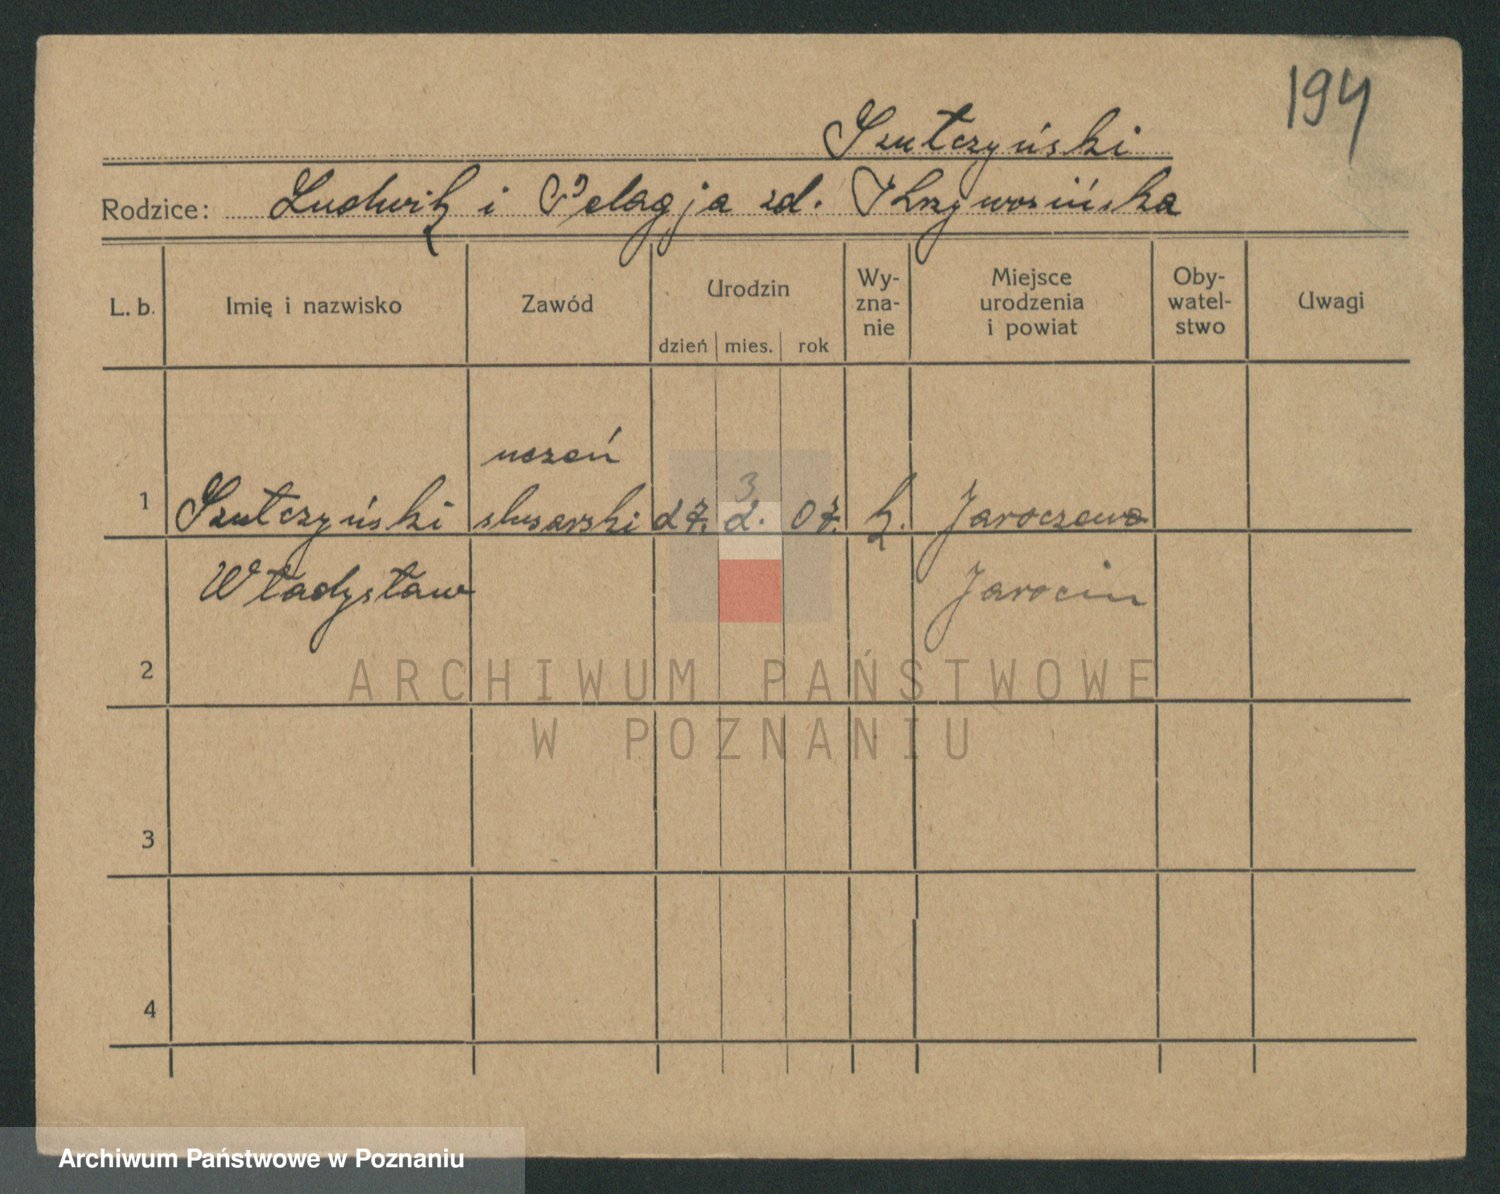 194
Szulczyński
Rodzice: Ludwik i Pelagja zd. Krzywosińska
L. b. Imię i nazwisko Zawód Urodzin dzień mies. rok Wy-zna-nie Miejsce urodzenia i powiat Oby-watel-stwo Uwagi
uczeń
3
1 Szulczyński slusarski 27. 2. 07. k. Jaroczewo
Władysław Jarocin
2
ARCHIWUM PAŃSTWOWE
W POZNANIU
3
4
Archiwum Państwowe w Poznaniu